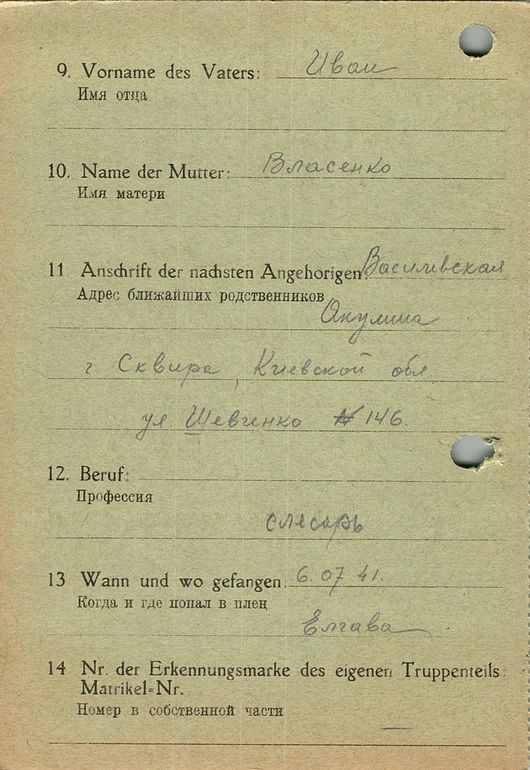 9. Vorname des Vaters: Иван
Имя отца
10. Name der Mutter: Власенко
Имя матери
11 Anschrift der nächsten Angehörigen: Василивская
Адрес ближайших родственников
Окулина
г Сквира, Киевской обл
ул Шевченко № 146
12. Beruf:
Профессия
слесарь
13 Wann und wo gefangen: 6.07 41.
Когда и где попал в плен
Елгава
14 Nr. der Erkennungsmarke des eigenen Truppenteils:
Matrikel-Nr.
Номер в собственной части
—